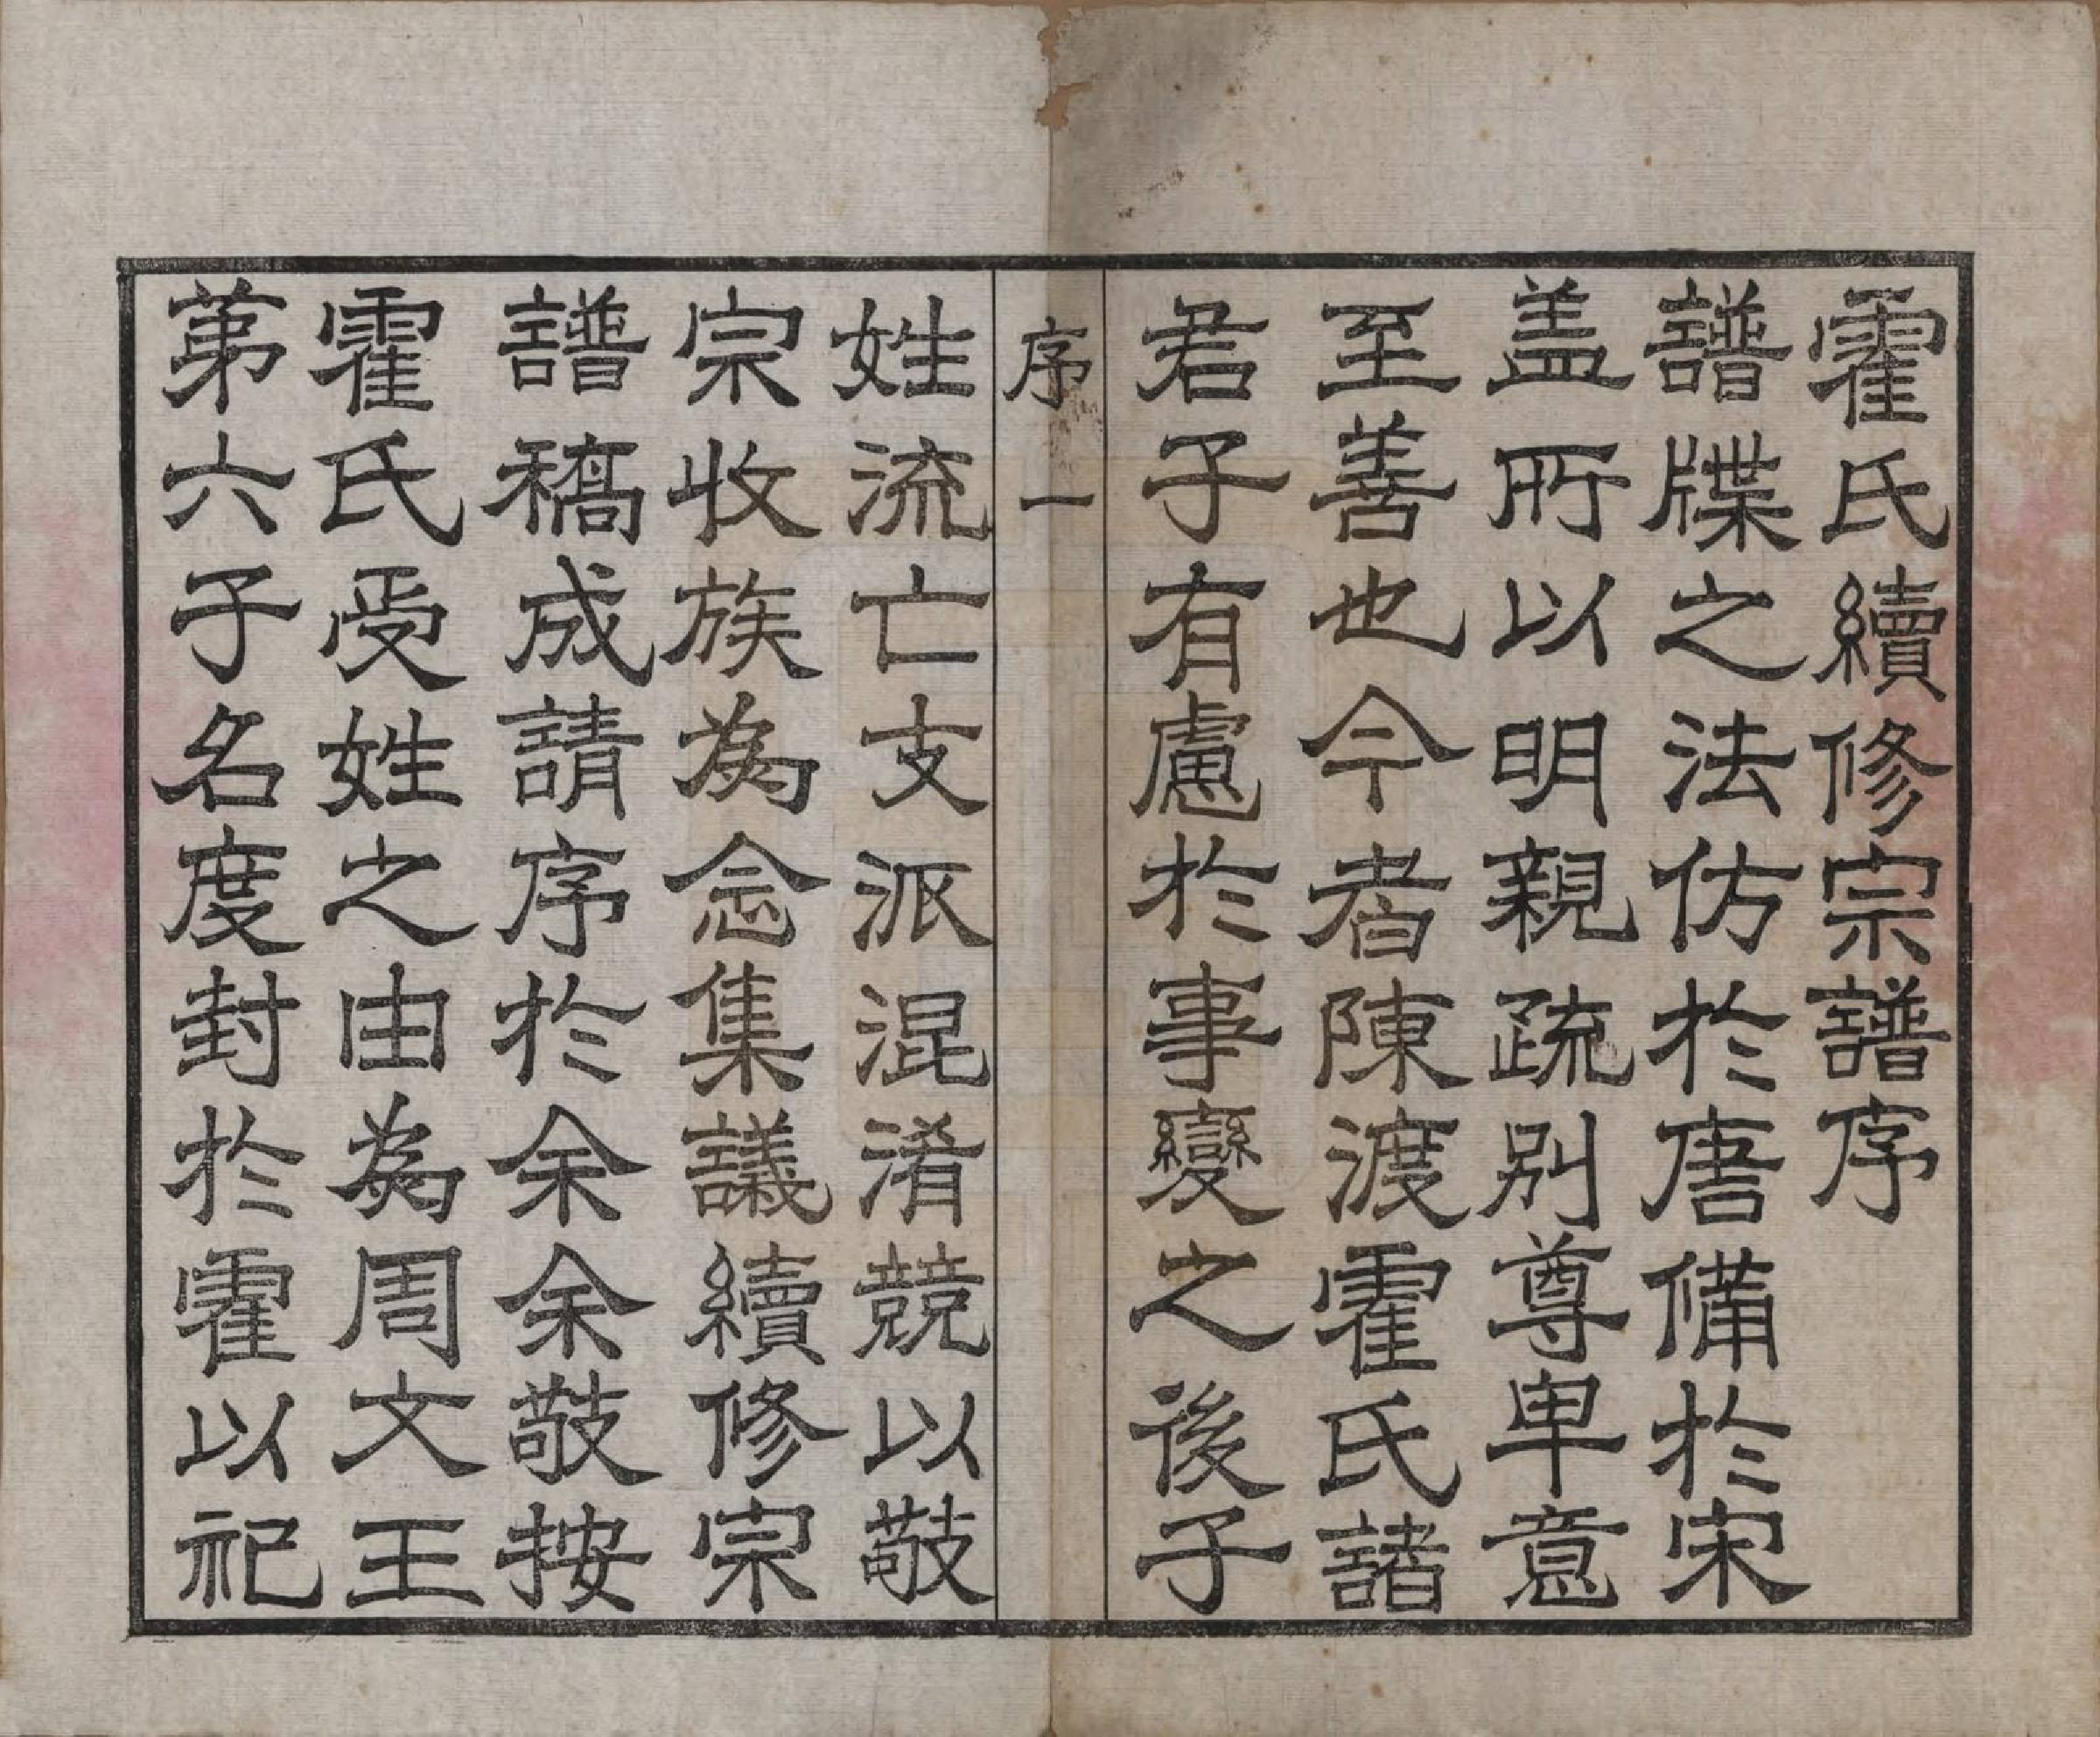 霍氏續修宗譜序
譜牒之法仿於唐備於宋
盖所以明親疏别尊卑意
至善也今者陳渡霍氏諸
君子有慮於事變之後子
序一
姓流亡支派混淆競以敬
宗收族為念集議續修宗
譜稿成請序於余余敬按
霍氏受姓之由為周文王
苐六子名度封於霍以祀